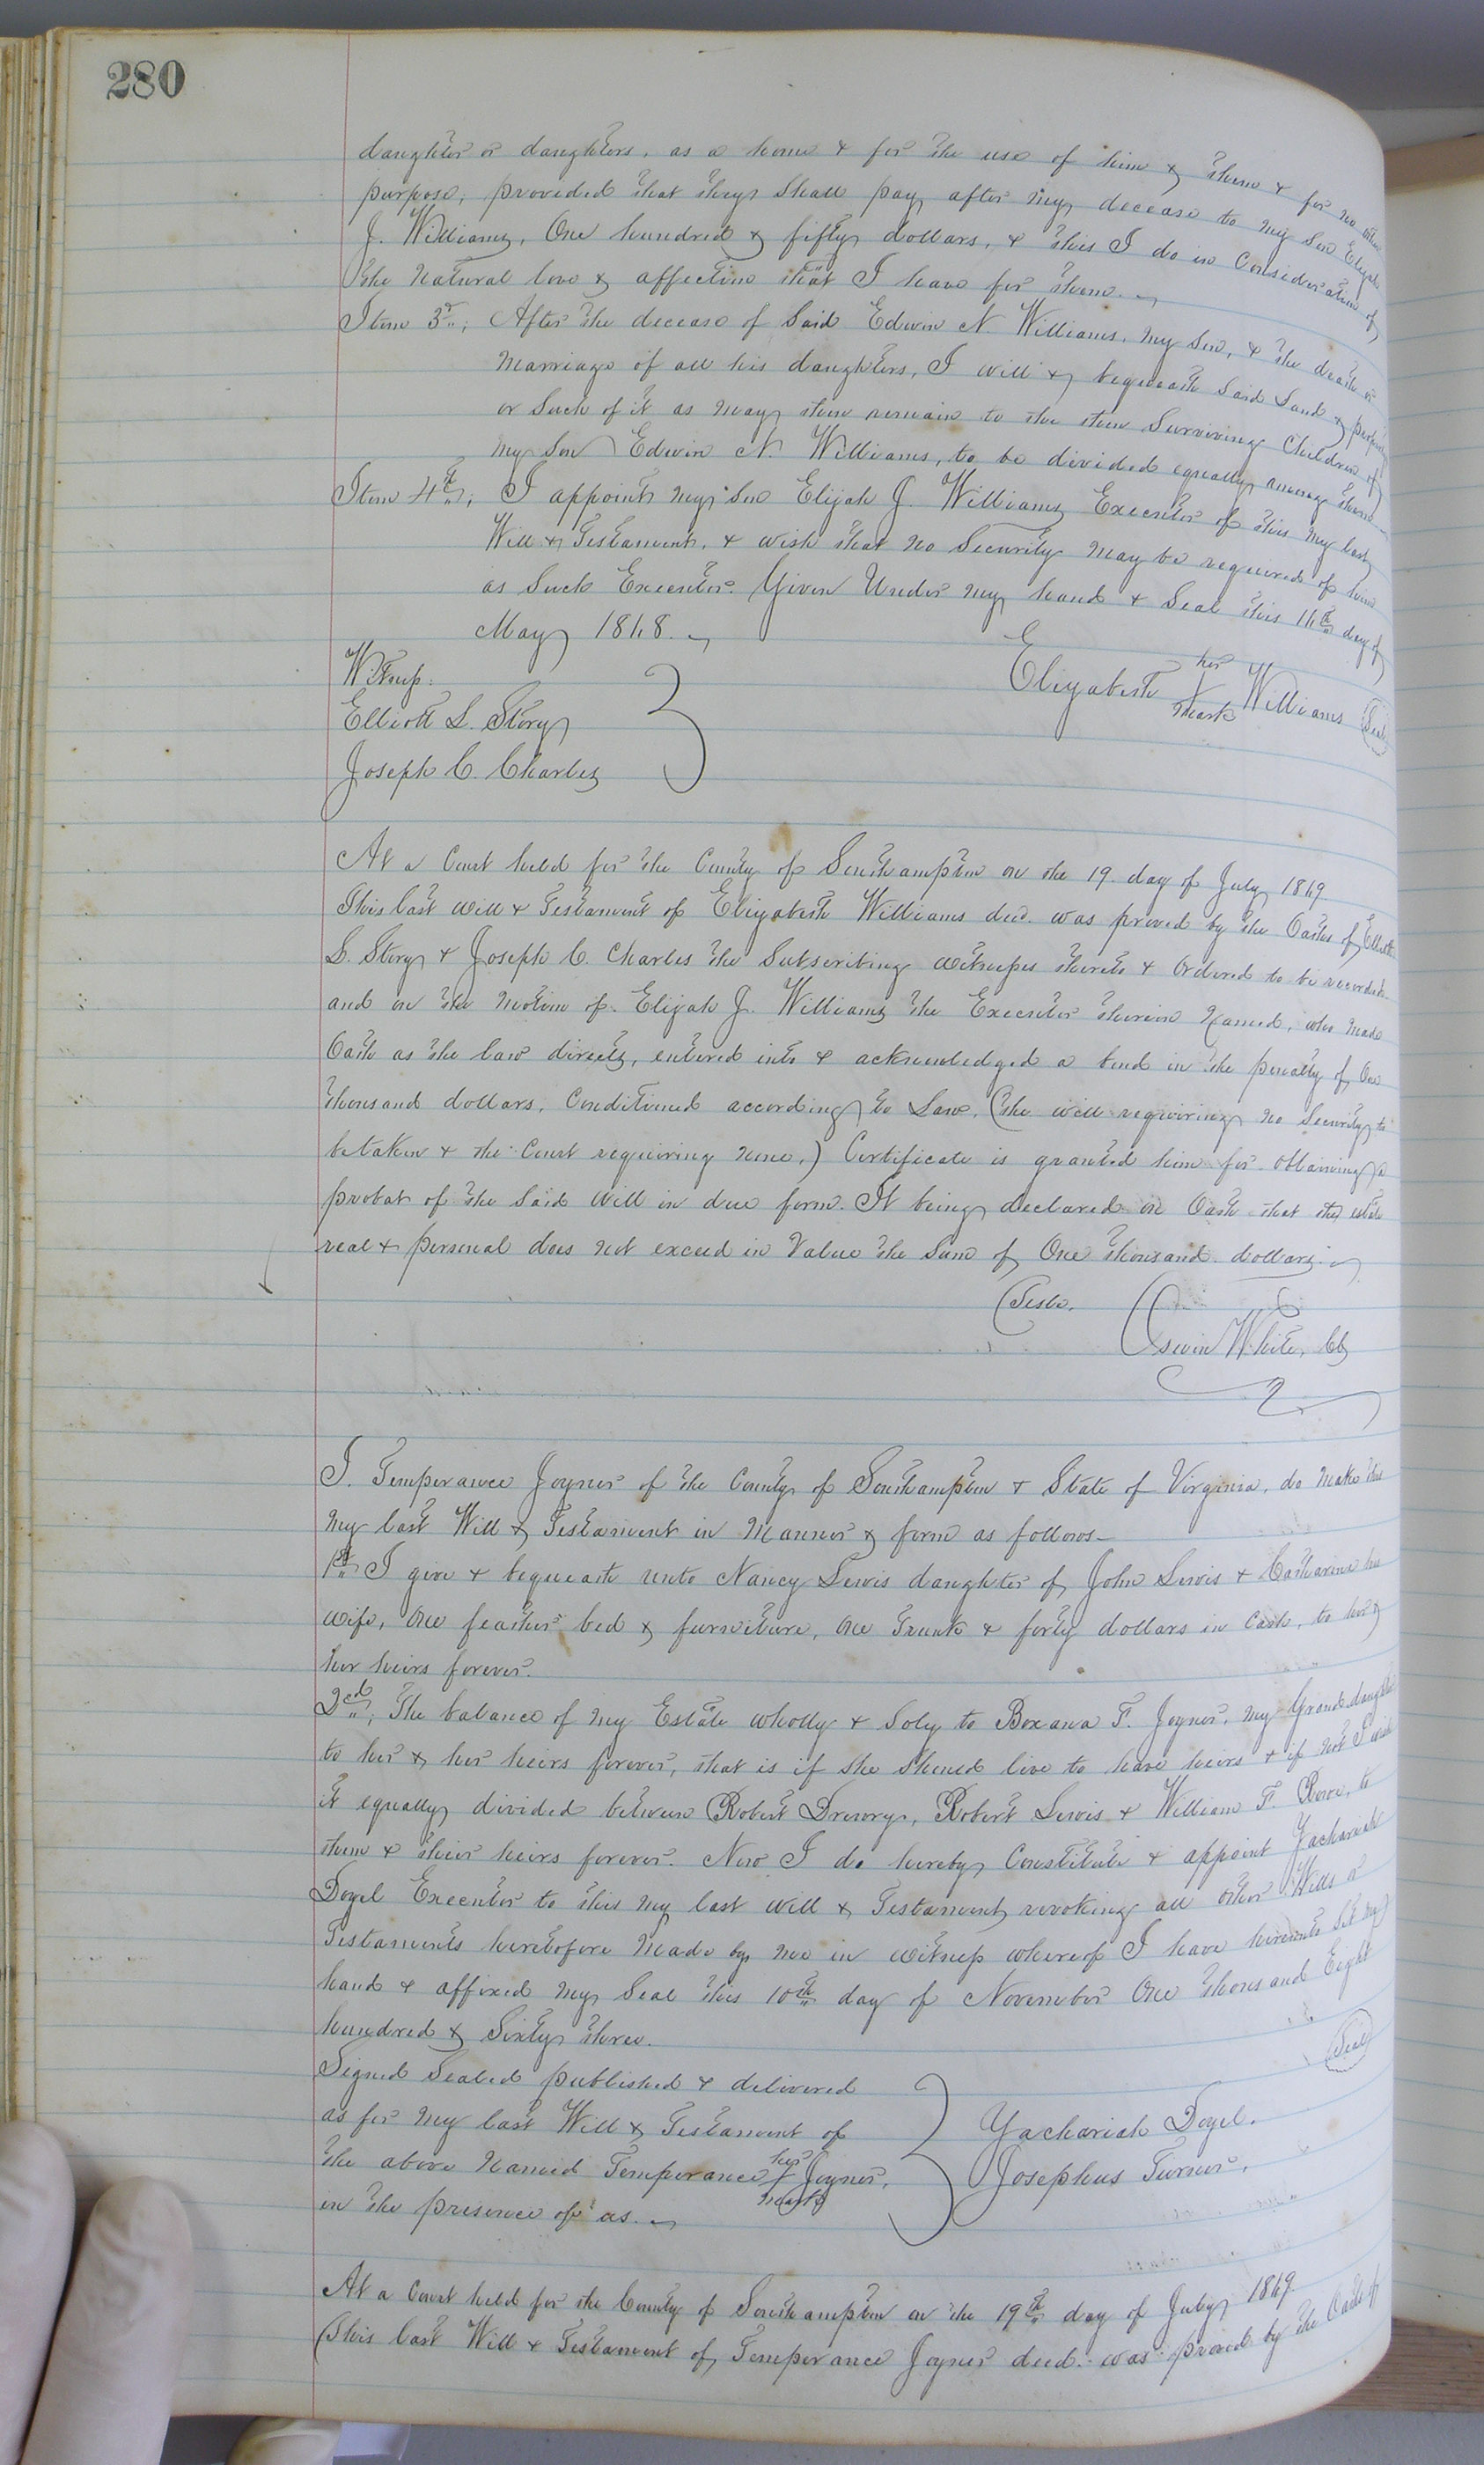 280
daughter or daughters, as a home & for the use of him & them & for no other
purpose; provided that they shall pay, after my decease to my son Elijah
J. Williams, One hundred & fifty dollars, & this I do in Consideration of
the natural love & affection that I have for them.
Item 3rd; After the decease of Said Edwin N. Williams, my son, & the death or
Marriage of all his daughters, I will & bequeath Said Land &
or Such of it as may then remain to the then Surviving Children of
my Son Edwin N. Williams, to be divided equally among them
Item 4th; I appoint my Son Elijah J. Williams Executor of this my last
Will & Testament, & wish that no Security may be required of him
as Such Executor. Given Under my hand & Seal this 14th day of
May 1868.
Witness:
Elizabeth her X mark Williams Seal
Elliott L. Story
Joseph C. Charles
At a Court held for the County of Southampton on the 19. day of July 1869.
This last Will & Testament of Elizabeth Williams decd. was proved by the Oaths of Elliott
L. Story & Joseph C. Charles the Subscribing witnesses thereto & Ordered to be recorded.
and on the Motion of Elijah J. Williams the Executor therein Named, who made
Oath as the law directs, entered into & acknowledged a bond in the penalty of One
thousand dollars, Conditioned according to Law, (the will requiring no Security to
be taken & the Court requiring none,) Certificate is granted him for obtaining a
probat of the Said Will in due form. It being declared on Oath that the estate
real & personal does not exceed in Value the Sum of One thousand dollars.
Teste.
Edwin White, Clk
I. Temperance Joyner of the County of Southampton & State of Virginia, do make this
my last Will & Testament in Manner & form as follows-
1st I give & bequeath unto Nancy Lewis daughter of John Lewis & Catharine his
wife, One feather bed & furniture, One Trunk & forty dollars in Cash, to her &
her heirs forever.
2nd, The balance of my Estate wholly & Soly to Roxana F. Joyner, my Grand daughter
to her & her heirs forever, that is if she should live to have heirs & if not I wish
it equally divided between Robert Drewry, Robert Lewis & William F. Rowe, to
them & their heirs forever. Now I do hereby Constitute & appoint Zachariah
Doyel Executor to this my last will & Testament, revoking all other Wills or
Testaments heretofore Made by me in witness whereof I have hereunto Set my
hand & affixed my Seal this 10th day of November One thousand Eight
hundred & Sixty three.
Seal
Signed Sealed published & delivered
as for my last Will & Testament of
the above Named Temperance her X mark Joyner,
in the presence of us.
Zachariah Doyel.
Josephus Turner.
At a Court held for the County of Southampton on the 19th day of July 1869.
This last Will & Testament of Temperance Joyner decd. was proved by the Oaths of